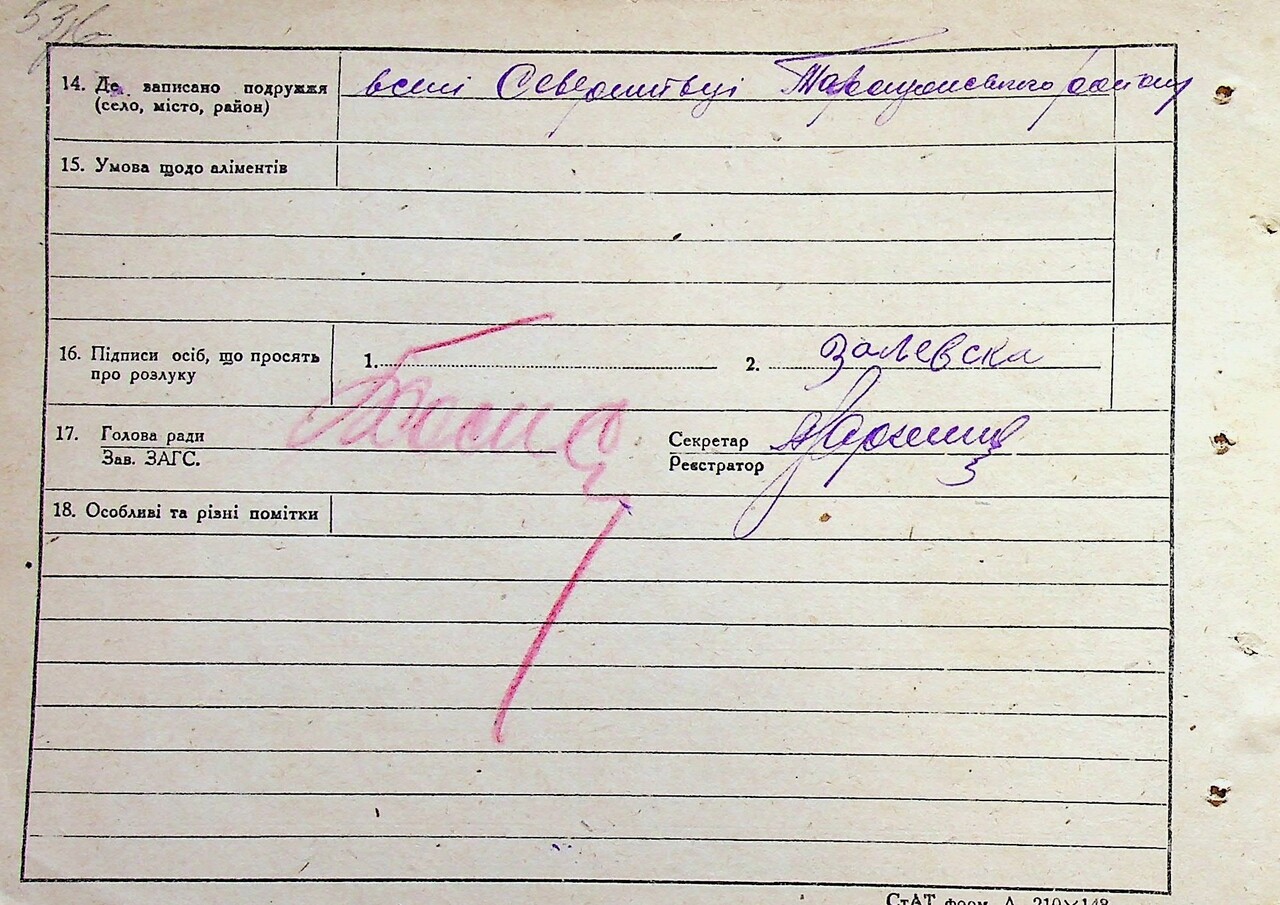 14. Де записано подружжя
(село, місто, район)
вселі Северинівці Таращанського району
15. Умова щодо аліментів
16. Підписи осіб, що просять
про розлуку
1.
2. Залевска
17. Голова ради
Зав. ЗАГС.
Секретар
Реєстратор
18. Особливі та різні помітки
СтАТ форм. А 210×148